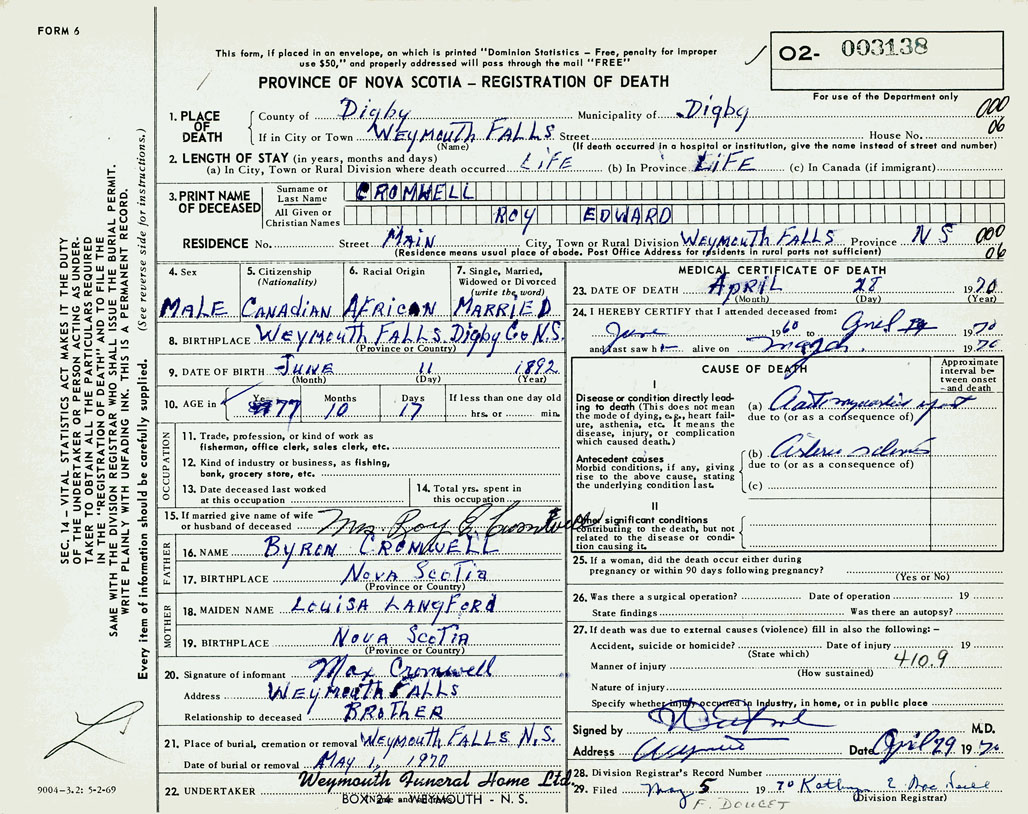 FORM 6
This form, if placed in an envelope, on which is printed "Dominion Statistics – Free, penalty for improper
use $50," and properly addressed will pass through the mail "FREE"
O2- 003138
For use of the Department only
PROVINCE OF NOVA SCOTIA – REGISTRATION OF DEATH
SEC. 14 – VITAL STATISTICS ACT MAKES IT THE DUTY
OF THE UNDERTAKER OR PERSON ACTING AS UNDER-
TAKER TO OBTAIN ALL THE PARTICULARS REQUIRED
IN THE "REGISTRATION OF DEATH" AND TO FILE THE
SAME WITH THE DIVISION REGISTRAR WHO SHALL ISSUE THE BURIAL PERMIT.
WRITE PLAINLY WITH UNFADING INK. THIS IS A PERMANENT RECORD.
Every item of information should be carefully supplied. (See reverse side for instructions.)
1. PLACE OF DEATH
County of Digby Municipality of Digby 000
If in City or Town WEYMOUTH FALLS Street House No. 06
(Name) (If death occurred in a hospital or institution, give the name instead of street and number)
2. LENGTH OF STAY (in years, months and days)
(a) In City, Town or Rural Division where death occurred LIFE (b) In Province LIFE (c) In Canada (if immigrant)
3. PRINT NAME OF DECEASED
Surname or Last Name CROMWELL
All Given or Christian Names ROY EDWARD
RESIDENCE No. Street MAIN City, Town or Rural Division WEYMOUTH FALLS Province N S 000
(Residence means usual place of abode. Post Office Address for residents in rural parts not sufficient) 06
4. Sex MALE
5. Citizenship (Nationality) CANADIAN
6. Racial Origin AFRICAN
7. Single, Married, Widowed or Divorced (write the word) MARRIED
8. BIRTHPLACE WEYMOUTH FALLS DIGBY Co N.S.
(Province or Country)
9. DATE OF BIRTH JUNE 11 1892
(Month) (Day) (Year)
10. AGE in Years 77 Months 10 Days 17 If less than one day old
hrs. or min.
OCCUPATION
11. Trade, profession, or kind of work as
fisherman, office clerk, sales clerk, etc.
12. Kind of industry or business, as fishing,
bank, grocery store, etc.
13. Date deceased last worked
at this occupation
14. Total yrs. spent in
this occupation
15. If married give name of wife
or husband of deceased Mrs Roy E Cromwell
FATHER
16. NAME BYRON CROMWELL
17. BIRTHPLACE NOVA SCOTIA
(Province or Country)
MOTHER
18. MAIDEN NAME LOUISA LANGFORD
19. BIRTHPLACE NOVA SCOTIA
(Province or Country)
20. Signature of informant Max Cromwell
Address WEYMOUTH FALLS
Relationship to deceased BROTHER
21. Place of burial, cremation or removal WEYMOUTH FALLS N.S.
Date of burial or removal MAY 1, 1970
22. UNDERTAKER Weymouth Funeral Home Ltd.
BOX 2 WEYMOUTH - N. S.
9004-3.2: 5-2-69
MEDICAL CERTIFICATE OF DEATH
23. DATE OF DEATH APRIL 28 1970
(Month) (Day) (Year)
24. I HEREBY CERTIFY that I attended deceased from:
June 1960 to April 1970
and last saw h alive on March 1970
CAUSE OF DEATH
Approximate interval between onset and death
I
Disease or condition directly lead-
ing to death (This does not mean
the mode of dying, e.g., heart fail-
ure, asthenia, etc. It means the
disease, injury, or complication
which caused death.)
(a)
due to (or as a consequence of)
Antecedent causes
Morbid conditions, if any, giving
rise to the above cause, stating
the underlying condition last.
(b)
due to (or as a consequence of)
(c)
II
Other significant conditions
contributing to the death, but not
related to the disease or condi-
tion causing it.
25. If a woman, did the death occur either during
pregnancy or within 90 days following pregnancy?
(Yes or No)
26. Was there a surgical operation? Date of operation 19
State findings Was there an autopsy?
27. If death was due to external causes (violence) fill in also the following: –
Accident, suicide or homicide? Date of injury 19
(State which) 410.9
Manner of injury
(How sustained)
Nature of injury
Specify whether injury occurred in Industry, in home, or in public place
Signed by M.D.
Address Weymouth Date April 29 1970
28. Division Registrar's Record Number
29. Filed May 5 1970
(Division Registrar)
F. DOUCET